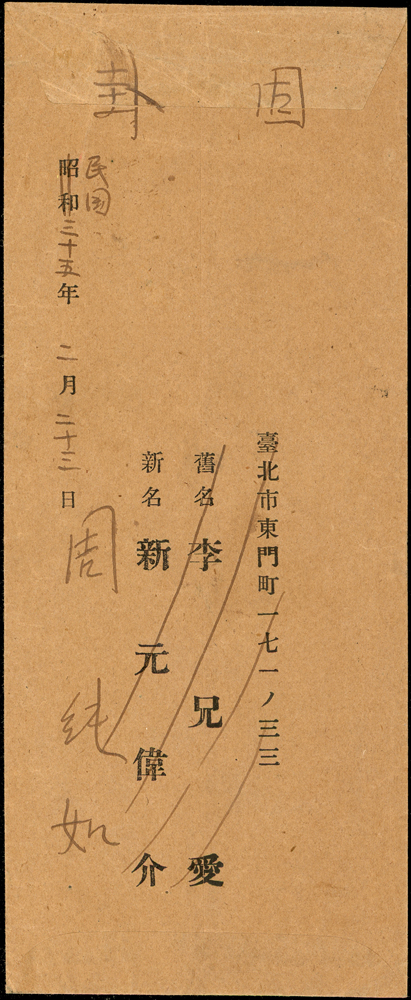 固 封
臺北市東門町一七一ノ三三
舊名 李兄愛
新名 新元偉介
民国
昭和三十五年 二月二十三日
周純如